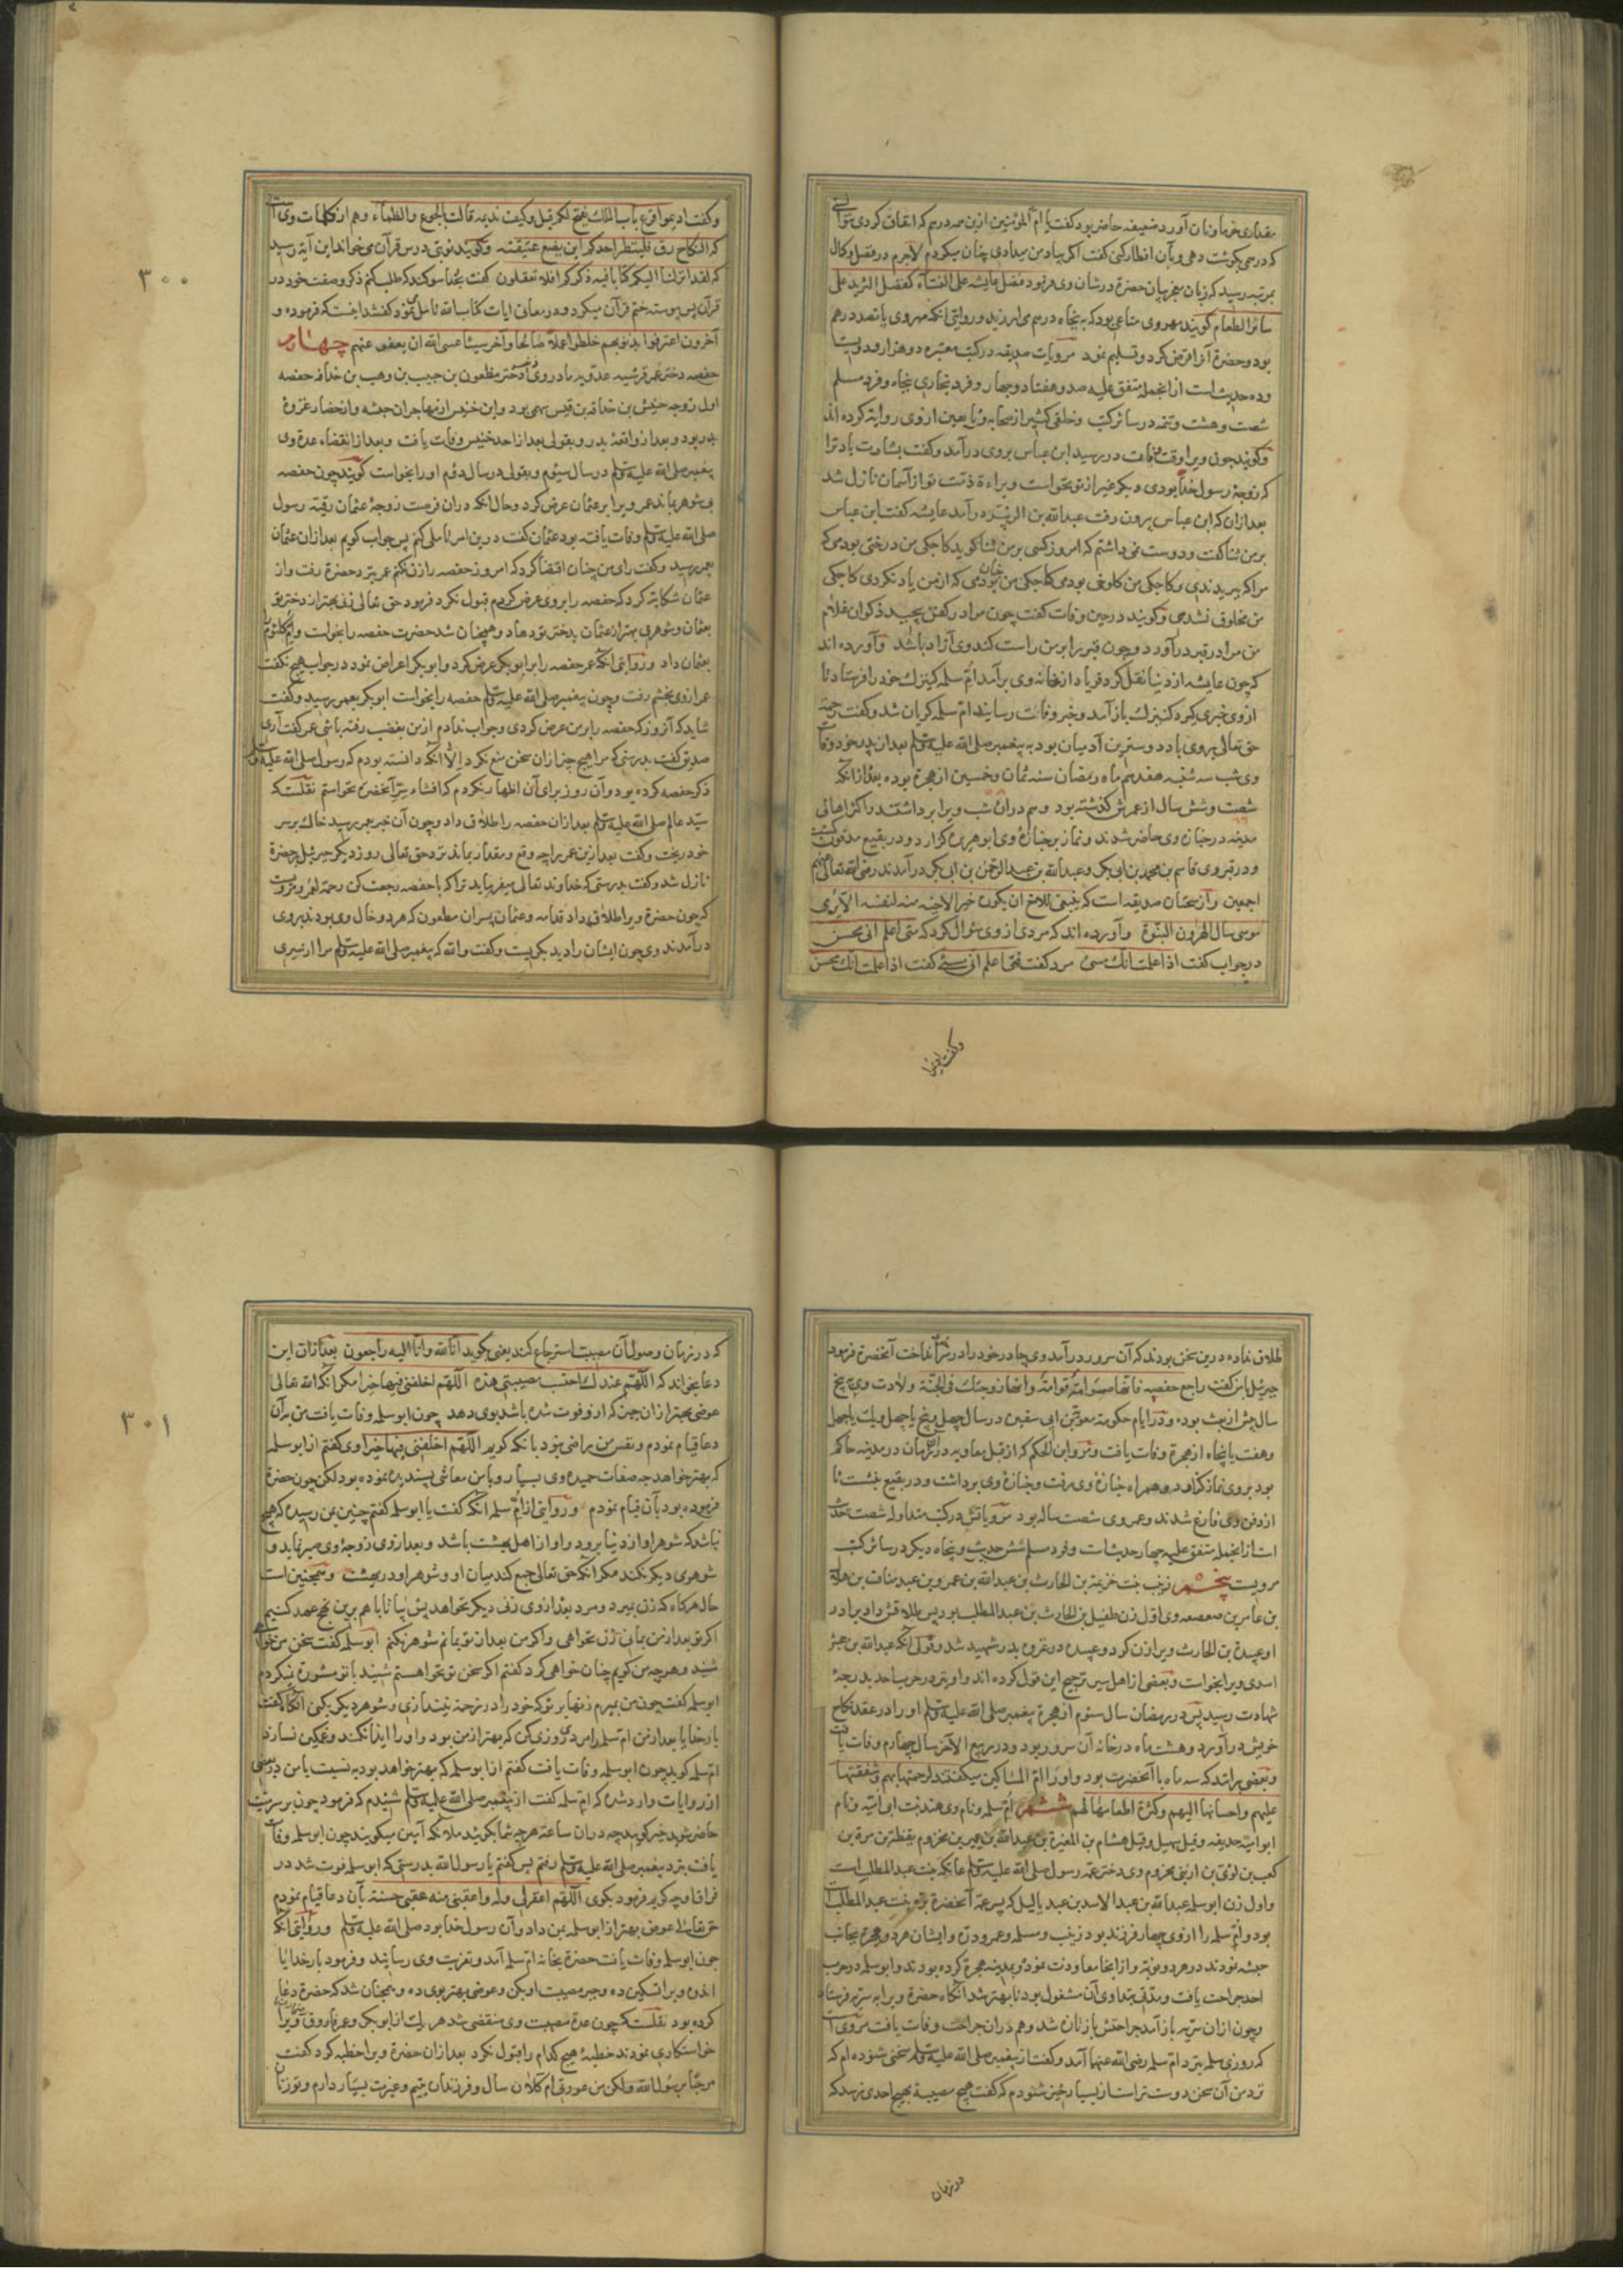 بمرتبه رسید که زبان معجزبیان حضرة در شان وی فرمود فضل عایشه علی النساء کفضل الثرید علی
سائر الطعام گویند
بود و حضرة آنرا قرض کرد و تسلیم نمود مرویات صدیقه در کتب معتبره دو هزار و دویست
و ده حدیث است از انجمله متفق علیه صد و هفتاد و چهار و فرد بخاری پنجاه و فرد مسلم
شصت و هشت و تتمه در سائر کتب و خلقی کثیر از صحابه و تابعین از وی روایة کرده اند
و گویند چون ویرا وقت وفات در رسید ابن عباس بروی درآمد و گفت بشارت باد ترا
که زوجهٔ رسول خدا بودی و بکر غیر از تو نخواست و براءة ذمت تو از آسمان نازل شد
بعد ازان که ابن عباس بیرون رفت عبدالله بن الزبیر درآمد عایشه گفت ابن عباس
بر من ثنا گفت و دوست نمی داشتم که امروز کسی بر من ثنا گوید کاجکی من درختی بودمی که
من مرا در قبر درآورد و چون قبر را بر من راست کند وی آزاد باشد و آورده اند
که چون عایشه از دنیا نقل کرد فریاد از خانه وی برآمد ام سلمه کنیزک خود را فرستاد تا
از وی خبری گیرد کنیزک باز آمد و خبر وفات رسانید ام سلمه گریان شد و گفت رحمة
حق تعالی بر وی باد دوسترین آدمیان بود به پیغمبر صلی الله علیه وسلم بعد از پدر خود وفات
وی شب سه شنبه هفدهم ماه رمضان سنه ثمان و خمسین از هجرة بوده بعد از آنکه
شصت و شش سال از عمرش گذشته بود و هم دران شب ویرا برداشتند و اکثر اهالی
مدینه در جنازه وی حاضر شدند و نماز بر جنازهٔ وی ابو هریره گزارد و در بقیع مدفون گشت
و در قبر وی قاسم بن محمد بن ابی بکر و عبدالله بن عبدالرحمن بن ابی بکر درآمدند رضی الله تعالی عنهم
در جواب گفت اذا علمت انک مسیئ مرد گفت فمتی اعلم انی مسیئ گفت اذا علمت انک محسن
وگفت ادیموا
وگفت ادیموا قرع باب الملک یفتح لکم قیل و کیف ندیمه قالت بالجوع والظماء وهم از کلمات وی است
که النکاح رق فلینظر احدکم این یضع عتیقته و گویند نوبتی درس قرآن می خواند باین آیه رسید
که لقد انزلنا الیکم کتابا فیه ذکرکم افلا تعقلون گفت بخدا سوگند که طلب کنم ذکر و صفت خود در
آخرون اعترفوا بذنوبهم خلطوا عملا صالحا وآخر سیئا عسی الله ان یعفو عنهم چهارم
حفصه دختر عمر قرشیه عدویه مادر وی زینب دختر مظعون بن حبیب بن وهب بن حذافه حفصه
اول زوجه خنیس بن حذافة بن قیس سهمی بود و ابن خنیس از مهاجران حبشه و از حضار غزوهٔ
بدر بود و بعد از واقعهٔ بدر و بقولی بعد از احد خنیس وفات یافت و بعد از انقضاء عدة وی
پیغمبر صلی الله علیه وسلم در سال سیوم و بقولی در سال دوم او را بخواست گویند چون حفصه
بی شوهر بماند عمر ویرا بر عثمان عرض کرد و حال آنکه دران فرصت زوجهٔ عثمان رقیه رسول
صلی الله علیه وسلم وفات یافته بود عثمان گفت درین امر تاملی کنم پس جواب گویم بعد ازان عثمان
بعمر رسید و گفت رای من چنان اقتضا کرد که امروز حفصه را زن نکنم عمر بنزد حضرة رفت و از
عثمان شکایة کرد که حفصه را بروی عرض کردم قبول نکرد فرمود حق تعالی زنی بهتر از دختر تو
بعثمان و شوهری بهتر از عثمان بدختر تو دهاد و همچنان شد حضرت حفصه را بخواست و ام کلثوم
بعثمان داد و روایتی آنکه عمر حفصه را بر ابوبکر عرض کرد و ابوبکر اعراض نمود در جواب هیچ نگفت
عمر از وی بخشم رفت و چون پیغمبر صلی الله علیه وسلم حفصه را بخواست ابوبکر بعمر رسید و گفت
شاید که آن روز که حفصه را بر من عرض کردی و جواب ندادم از من بغضب رفته باشی عمر گفت آری
ذکر حفصه کرده بود و آن روز برای آن اظهار نکردم که افشاء سر آنحضرة نخواستم نقلست که
سید عالم صلی الله علیه وسلم بعد ازان حفصه را طلاق داد و چون آن خبر بعمر رسید خاک بر سر
نازل شد و گفت بدرستی که خداوند تعالی میفرماید ترا که با حفصه رجعت کن رحمة لعمر و مرویست
که چون حضرة ویرا طلاق داد قدامه و عثمان پسران مظعون که هر دو خال وی بودند بر وی
درآمدند وی چون ایشان را دید بگریست و گفت والله که پیغمبر صلی الله علیه وسلم مرا از سیری
٣٠٠
طلاق نداده درین سخن بودند که آن سرور درآمد وی چادر خود را در سر انداخت آنحضرة فرمود
جبرئیل با من گفت راجع حفصه فانها صوامة قوامة وانها زوجتک فی الجنة ولادت وی پنج
سال پیش از بعثت بوده و در ایام حکومة معویة بن ابی سفین در سال چهل و پنج یا چهل و یک یا چهل
و هفت یا پنجاه از هجرة وفات یافت و مروان بن الحکم که از قبل معاویه در آن زمان در مدینه حاکم
بود بروی نماز گذارد و همراه جنازهٔ وی برفت و جنازهٔ وی برداشت و در بقیع بنشست تا
از دفن وی فارغ شدند و عمر وی شصت ساله بود مرویاتش در کتب متداوله شصت حدیث
است از انجمله متفق علیه چهار حدیث و فرد مسلم شش حدیث و پنجاه دیگر در سائر کتب
مرویست پنجم زینب بنت خزیمة بن الحارث بن عبدالله بن عمرو بن عبد مناف بن هلال
بن عامر بن صعصعه وی اول زن طفیل بن الحارث بن عبدالمطلب بود پس طلاقش داد برادر
او عبیدة بن الحارث ویرا زن کرد و عبیده در غزوه بدر شهید شد و قولی آنکه عبدالله بن جحش
اسدی ویرا بخواست و بعضی از اهل سیر ترجیح این قول کرده اند و او نیز در حرب احد بدرجهٔ
شهادت رسید پس در رمضان سال سیوم از هجرة پیغمبر صلی الله علیه وسلم او را در عقد نکاح
خویش درآورد و هشت ماه در خانه آن سرور بود و در ربیع الآخر سال چهارم وفات یافت
و بعضی برانند که سه ماه با آنحضرت بود و او را ام المساکین میگفتند لرحمتها بهم وشفقتها
علیهم واحسانها الیهم وکثرة اطعامها لهم ششم ام سلمه و نام وی هند بنت ابی امیه و نام
کعب بن لوی
و اول زن ابو سلمه عبدالله بن عبدالاسد
بود و ام سلمه را از وی چهار فرزند بود زینب و سلمه و عمر و دره و ایشان هر دو هجرة بجانب
احد جراحت یافت و مدتی بتداوی آن مشغول بود تا بهتر شد آنگاه حضرة ویرا به سریه فرستاد
و چون ازان سریه باز آمد جراحتش باز تازه شد و هم دران جراحت وفات یافت مرویست
که روزی سلمه بنزد ام سلمه رضی الله عنها آمد و گفت از پیغمبر صلی الله علیه وسلم سخنی شنوده ام که
نزد من آن سخن دوست تر است از بسیار چیز شنودم که گفت هیچ مصیبة بهیچ احدی نرسد که
در زمان
که در زمان وصول آن مصیبت استرجاع کند یعنی بگوید انا لله وانا الیه راجعون بعد ازان این
دعا بخواند که اللهم عندک احتسب مصیبتی هذه اللهم اخلفنی فیها خیرا مگر آنکه الله تعالی
عوضی بهتر ازان چیز که ازو فوت شده باشد بوی دهد چون ابو سلمه وفات یافت من بآن
دعا قیام نمودم و نفس من راضی نبود بانکه گویم اللهم اخلفنی فیها خیرا و می گفتم از ابو سلمه
که بهتر خواهد
فرموده بود بآن قیام نمودم و روایتی از ام سلمه آنکه گفت با ابو سلمه گفتم چنین بمن رسیده که هیچ
شوهری دیگر نکند مگر آنکه حق تعالی جمع کند میان او و شوهر او در بهشت و همچنین است
حال هرگاه که زن بمیرد و مرد بعد از وی زنی دیگر نخواهد پس بیا تا با هم برین نهج عهد کنیم
اگر تو بعد از من بمانی زن نخواهی و اگر من بعد از تو بمانم شوهر نکنم ابو سلمه گفت سخن من خواهی
شنید و هر چه من گویم چنان خواهی کرد گفتم اگر سخن تو نخواهستم شنید با تو مشورة نمیکردم
ابو سلمه گفت چون من بمیرم زنهار تو که خود را در زحمت نیندازی و شوهر دیگر بکنی آنگاه گفت
بار خدایا بعد از من ام سلمه را مردی روزی کن که بهتر از من بود و او را ایذا نکند و غمگین نسازد
ام سلمه گوید چون ابو سلمه وفات یافت گفتم از ابو سلمه که بهتر خواهد بود به نسبت با من و بعضی
از روایات وارد شده که ام سلمه گفت از پیغمبر صلی الله علیه وسلم شنیدم که فرمود چون بر سر میت
حاضر شوید خیر گویید چه دران ساعة هرچه شما بگویید ملائکه آمین میگویند چون ابو سلمه وفات
یافت بنزد پیغمبر صلی الله علیه وسلم رفتم پس گفتم یا رسول الله بدرستی که ابو سلمه فوت شد در
فراق او چه گویم فرمود بگوی اللهم اغفر لی وله واعقبنی منه عقبی حسنة بآن دعا قیام نمودم
حق تعالی عوض بهتر از ابو سلمه بمن داد و آن رسول خدا بود صلی الله علیه وسلم و روایتی آنکه
چون ابو سلمه وفات یافت حضرة بخانه ام سلمه آمد و تعزیت وی رسانید و فرمود بار خدایا
اندوه ویرا تسکین ده و جبر مصیبت او بکن و عوضی بهتر بوی ده و همچنان شد که حضرة دعا
کرده بود نقلست که چون عدة مصیبت وی منقضی شد هر یک از ابوبکر و عمر فاروق ویرا
خواستگاری نمودند خطبهٔ هیچ کدام را قبول نکرد بعد ازان حضرة ویرا خطبه کرد گفت
مرحبا برسول الله ولکن من عورتی ام کلان سال و فرزندان یتیم و غیرت بسیار دارم و تو زنان
٣٠١